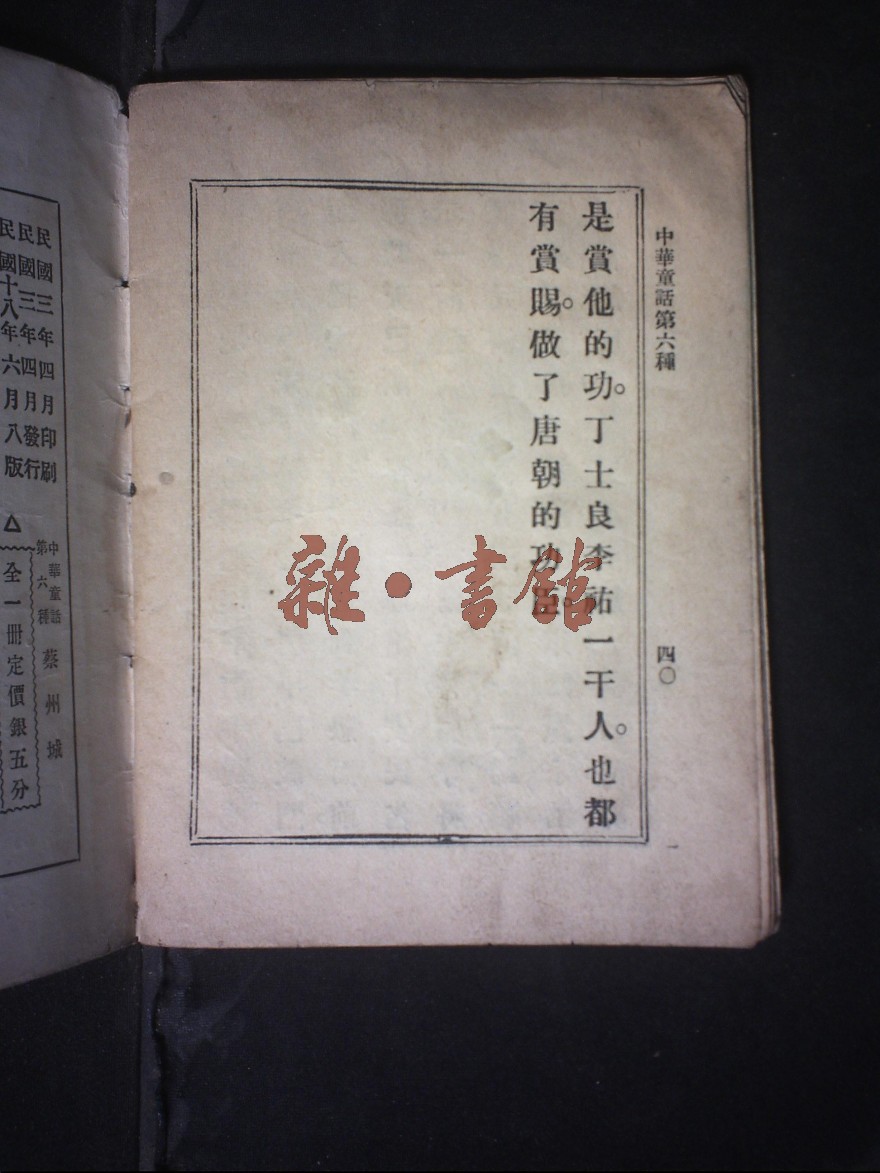 中華童話第六種
四〇
是賞他的功。丁士良李祐一干人。也都
有賞賜。做了唐朝的功臣。
雜·書館
民國三年四月印刷
民國三年四月發行
民國十八年六月八版
中華童話
第六種
蔡州城
△
全一冊定價銀五分